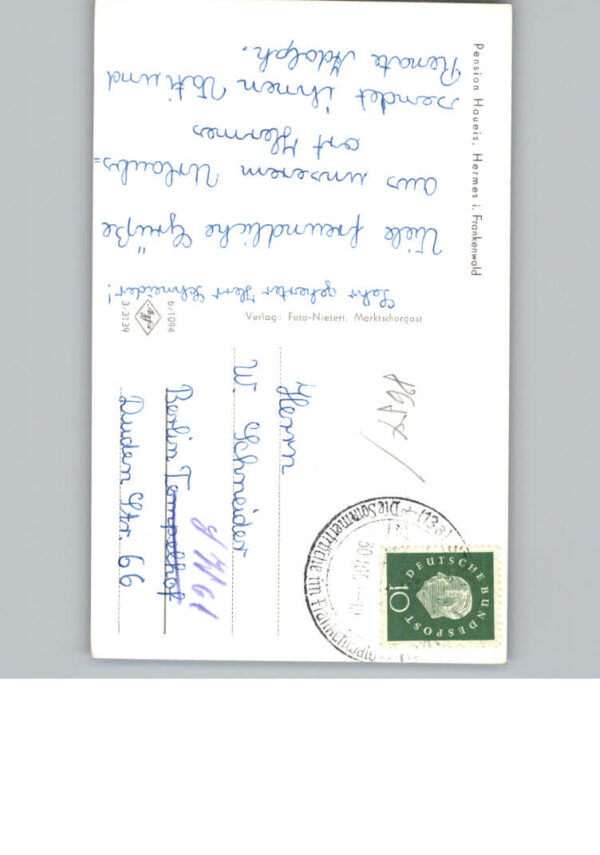 Pension Haueis, Hermes i. Frankenwald
Sehr geherter Herr Schneider!
Viele freundliche Grüße
aus unserem Urlaubs=
ort Hermes
sendet ihnen Vati und
Renate Adolph.
Verlag: Foto-Nietert, Marktschorgast
6/1094
3-3139
Herrn
W. Schneider
Berlin Tempelhof
Duden Str. 66
Die Sommerfrische im Frankenwald
(13a)
DEUTSCHE BUNDESPOST
10